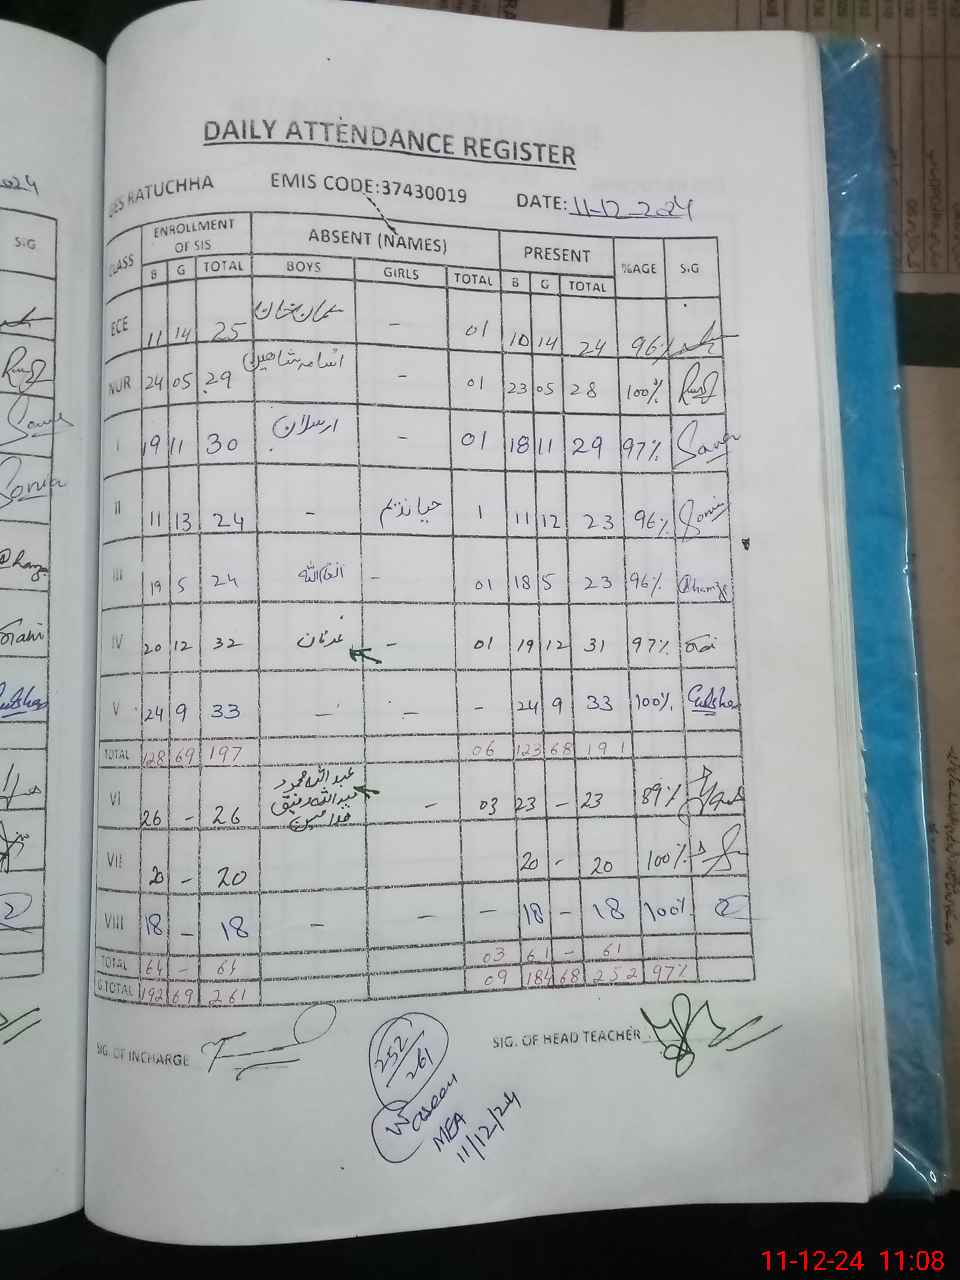 DAILY ATTENDANCE REGISTER
RATUCHHA EMIS CODE:37430019 DATE: 11-12-2024
CLASS ENROLLMENT OF SIS ABSENT (NAMES) PRESENT %AGE SiG
B G TOTAL BOYS GIRLS TOTAL B G TOTAL
ECE 11 14 25 – 01 10 14 24 96%
NUR 24 05 29 اسامہ شاھین – 01 23 05 28 100%
I 19 11 30 ارسلان – 01 18 11 29 97%
II 11 13 24 – حیا ندیم 1 11 12 23 96% Sonia
III 19 5 24 – 01 18 5 23 96%
IV 20 12 32 عدنان – 01 19 12 31 97%
V 24 9 33 – – – 24 9 33 100%
TOTAL 128 69 197 06 123 68 191
VI 26 – 26 عبداللہ محمود – 03 23 – 23 89%
VII 20 – 20 20 – 20 100%
VIII 18 – 18 – – – 18 – 18 100%
TOTAL 64 – 64 03 61 – 61
G.TOTAL 192 69 261 09 184 68 252 97%
SIG. OF INCHARGE SIG. OF HEAD TEACHER
252/261
Waseem
MEA
11/12/24
2024
SiG
Sonia
11-12-24 11:08